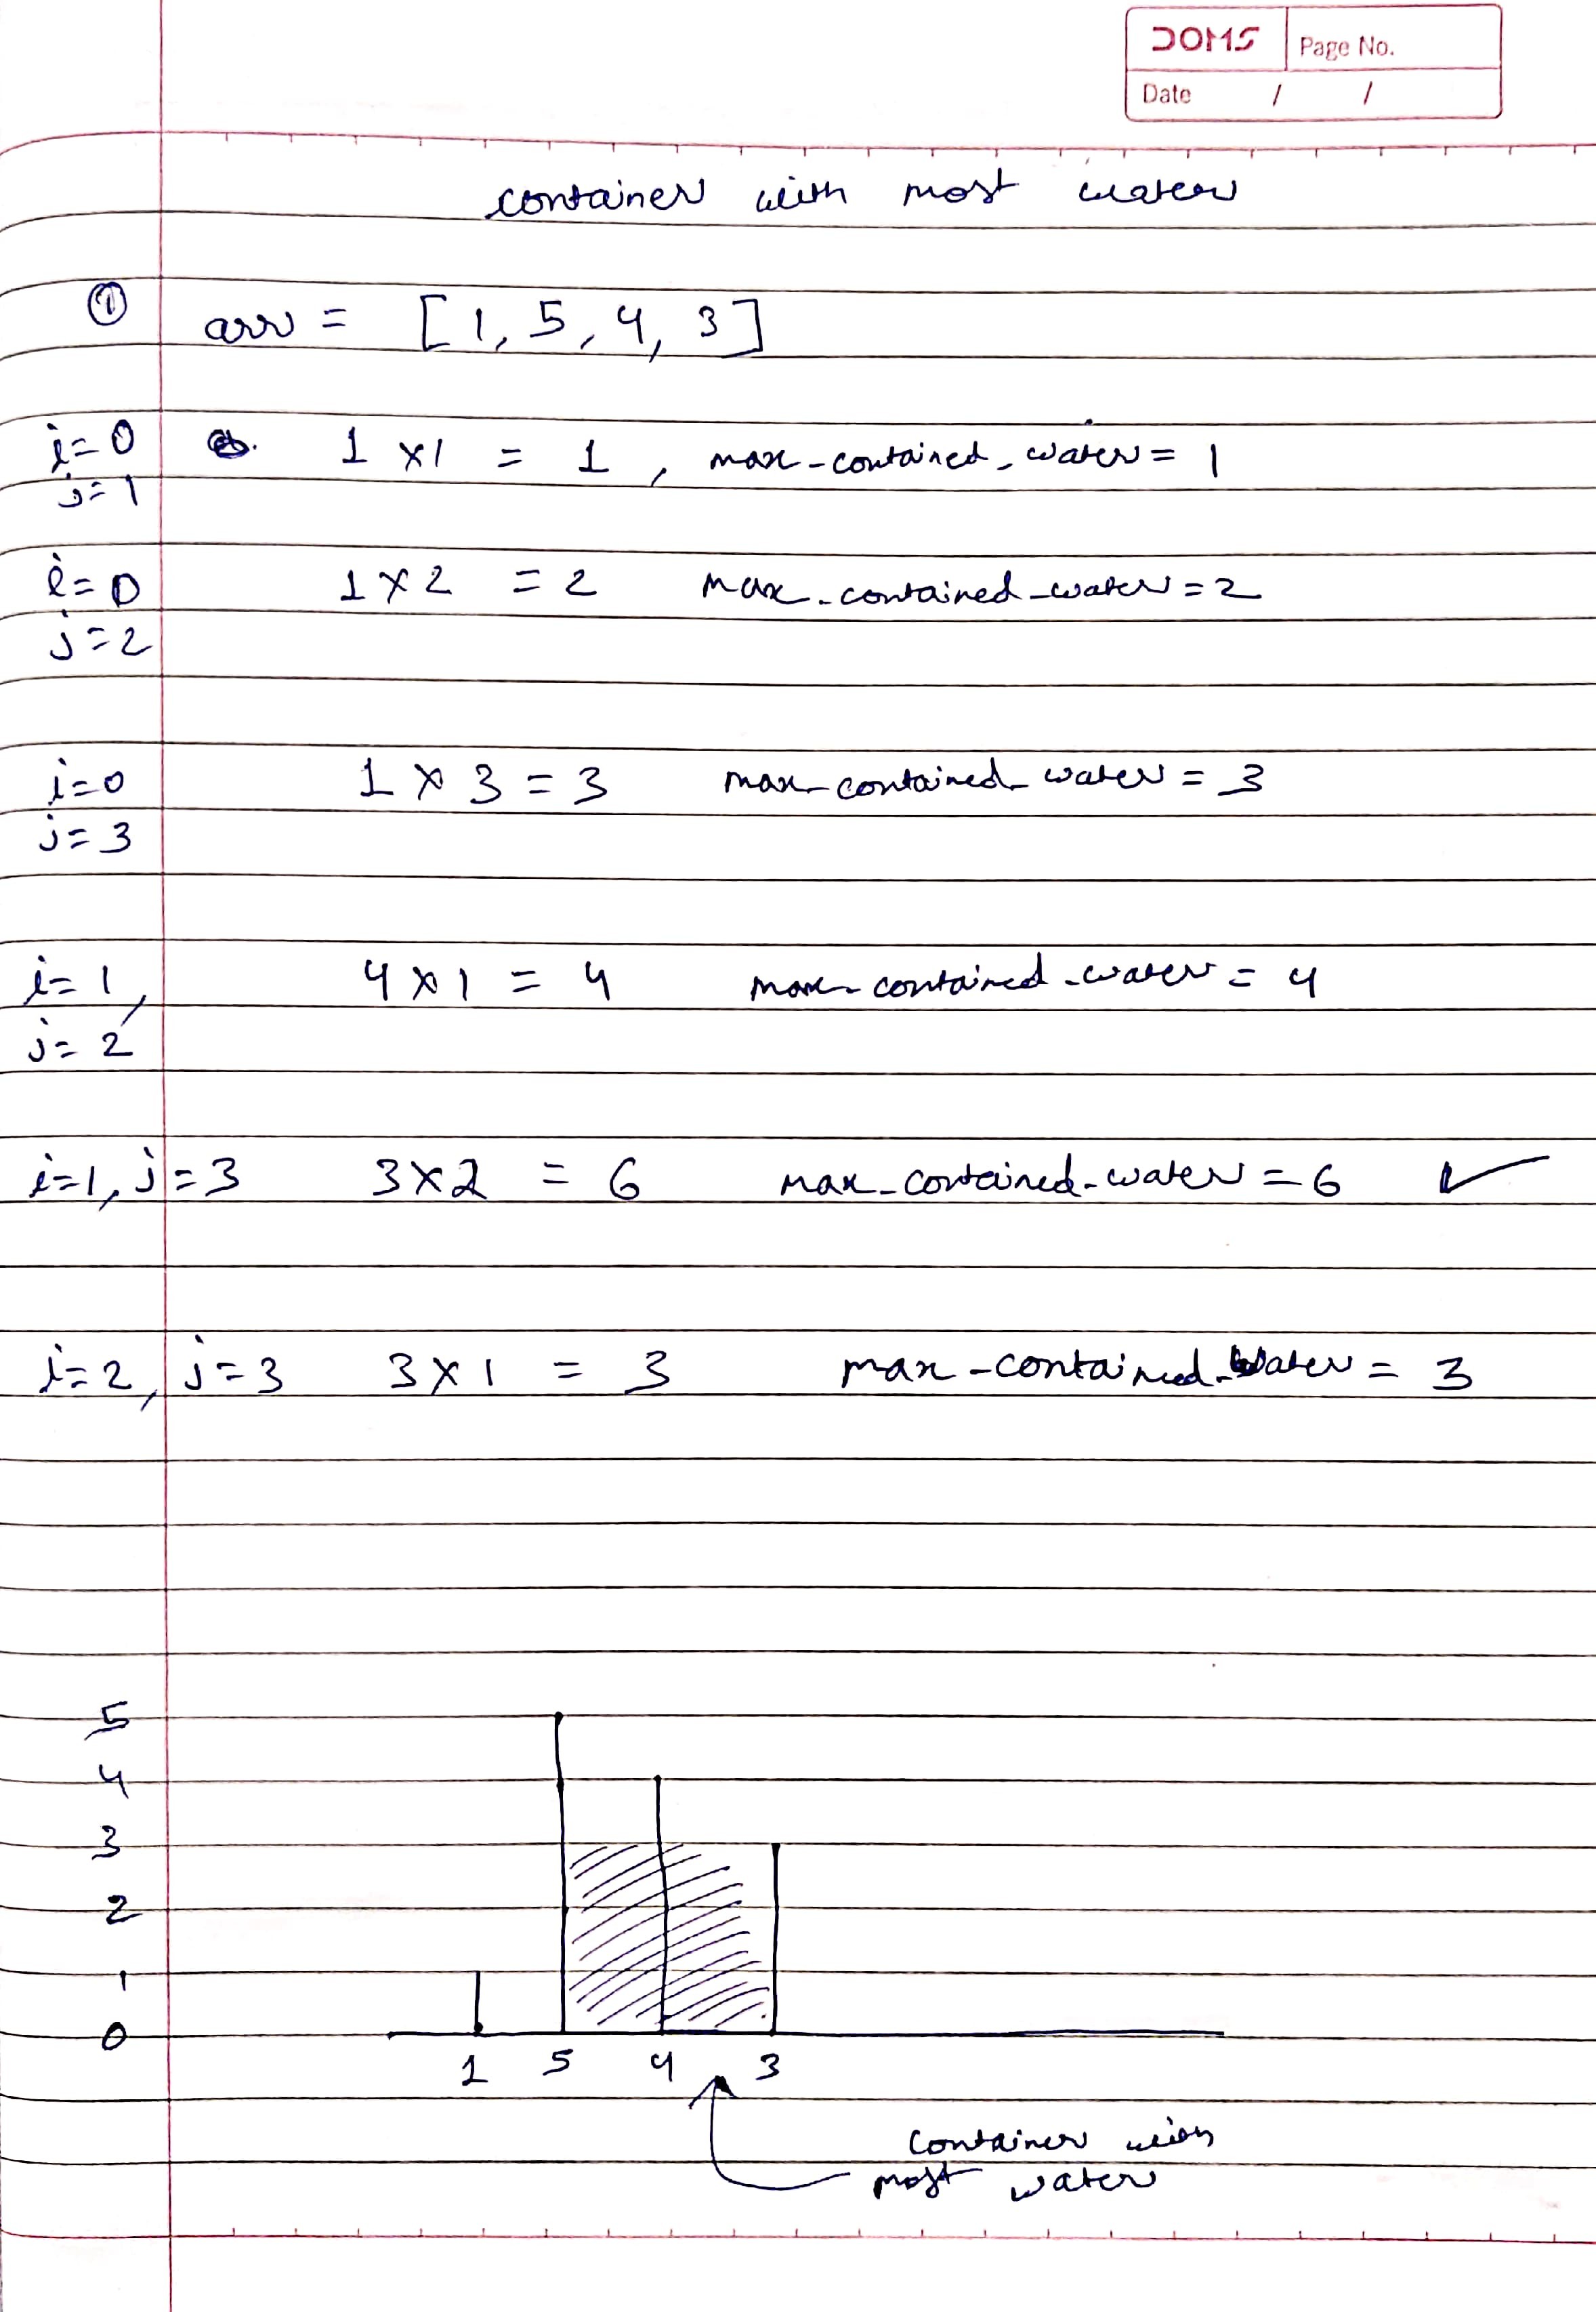 DOMS Page No.
Date / /
container with most water
① arr = [1, 5, 4, 3]
i=0 1 × 1 = 1 , max-contained-water = 1
j=1
i=0 1 × 2 = 2 max-contained-water = 2
j=2
i=0 1 × 3 = 3 max-contained-water = 3
j=3
i=1, 4 × 1 = 4 max-contained-water = 4
j=2
i=1, j=3 3×2 = 6 max-contained-water = 6 ✓
i=2, j=3 3×1 = 3 max-contained-water = 3
5
4
3
2
1
0
1 5 4 3
container with
most water